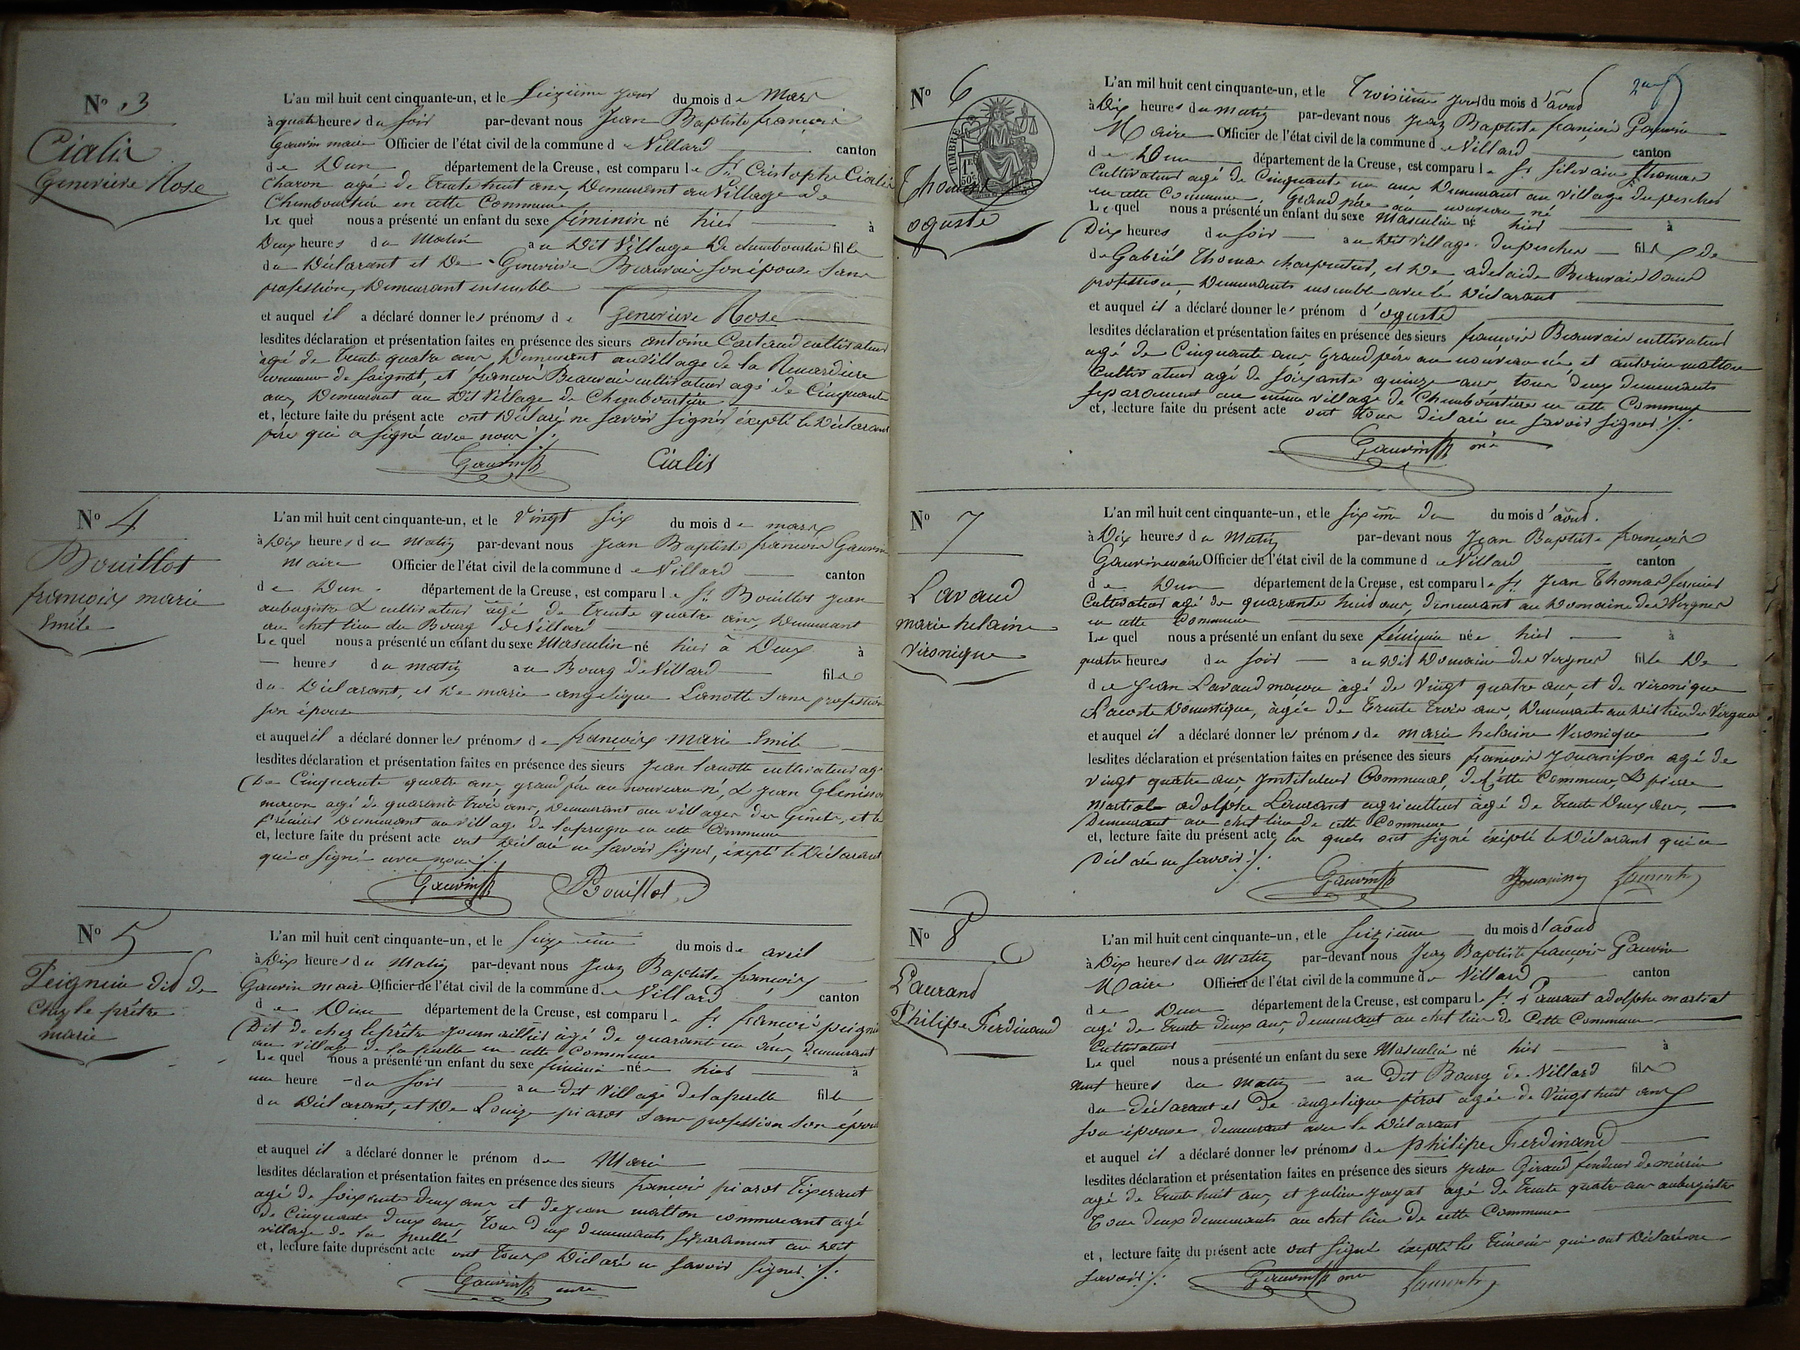 N° 3
Cialis
Geneviève Rose
L'an mil huit cent cinquante-un, et le Seizième jour du mois de Mars
à quatre heures du soir par-devant nous Jean Baptiste françois
Gauvin maire Officier de l'état civil de la commune de Villard canton
de Dun département de la Creuse, est comparu le Sr Cristophe Cialis
Charon agé de trente huit ans, Demeurant au Village de
Chemboutière en cette Commune
Le quel nous a présenté un enfant du sexe féminin né hier à
Deux heures du Matin au Dit Village De chemboutière fille
du Déclarant et De Geneviève Beauvais son épouse Sans
profession, Demeurant ensemble
et auquel il a déclaré donner les prénoms de Geneviève Rose
lesdites déclaration et présentation faites en présence des sieurs antoine Cartaud cultivateur
agé de trente quatre ans, Demeurant au village de la
commune de Saignat, et françois Beauvais cultivateur agé de Cinquante
ans, Demeurant au Dit Village de Chemboutière
et, lecture faite du présent acte ont Déclaré ne savoir signer éxepté le Déclarant
père qui a signé avec nous
Gauvin Cialis
N° 4
Bouillot
françois marie
Emile
L'an mil huit cent cinquante-un, et le Vingt Six du mois de mars
à Dix heures du Matin par-devant nous Jean Baptiste françois Gauvin
Maire Officier de l'état civil de la commune de Villard canton
de Dun département de la Creuse, est comparu le Sr Bouillot jean
aubergiste & cultivateur agé de trente quatre ans Demeurant
au chef lieu du Bourg de Villard
Le quel nous a présenté un enfant du sexe Masculin né hier à Deux à
heures du matin au Bourg de Villard fils
du Déclarant, et De marie angelique Lanotte Sans profession
son épouse
et auquel il a déclaré donner les prénoms de françois marie Emile
lesdites déclaration et présentation faites en présence des sieurs Jean Lanotte cultivateur agé
De Cinquante quatre ans, grand père au nouveau né, & Jean Glenisson
maçon agé de quarante trois ans, Demeurant au village des Genets, et le
premier Demeurant au village de en cette Commune
et, lecture faite du présent acte ont Déclaré ne savoir signer, éxepté le Déclarant
qui a signé avec nous
Gauvin Bouillot
N° 5
Peignin dit de
Chez le prêtre
marie
L'an mil huit cent cinquante-un, et le Seizième du mois de avril
à Dix heures du Matin par-devant nous Jean Baptiste françois
Gauvin maire Officier de l'état civil de la commune de Villard canton
de Dun département de la Creuse, est comparu le Sr françois peignin
Dit de chez leprêtre journaillier agé de quarante un ans, Demeurant
au village de la en cette Commune
Le quel nous a présenté un enfant du sexe féminin née hier à
une heure du soir au dit Village fille
du Déclarant, et De Louize piarot Sans profession Son épouse
et auquel il a déclaré donner le prénom de Marie
lesdites déclaration et présentation faites en présence des sieurs françois piarot Tixerant
agé de soixante deux ans et de jean malton commercant agé
de Cinquante deux ans, Tous deux demeurants séparament au Dit
village de la
et, lecture faite du présent acte ont Tous Déclaré ne savoir signer
Gauvin mre
N° 6
Thomas
oguste
L'an mil huit cent cinquante-un, et le Troisième jour du mois d'août
à Dix heures du matin par-devant nous Jean Baptiste françois Gauvin
Maire Officier de l'état civil de la commune de Villard canton
de Dun département de la Creuse, est comparu le Sr Silvain Thomas
Cultivateur agé de Cinquante un ans Demeurant au village du pescher
en cette Commune, Grand père au nouveau né
Le quel nous a présenté un enfant du sexe Masculin né hier à
Dix heures du soir au Dit village du pescher fils de
de Gabriel Thomas charpentier, et De adelaide Beauvais Sans
profession, Demeurants ensemble avec le Déclarant
et auquel il a déclaré donner les prénom d'oguste
lesdites déclaration et présentation faites en présence des sieurs françois Beauvais cultivateur
agé de Cinquante ans, Grand père au nouveau né et antoine malton
Cultivateur agé de soixante quinze ans, tous deux demeurants
séparament au même village de Chemboutière en cette Commune
et, lecture faite du présent acte ont tous déclaré ne savoir signer
Gauvin mre
N° 7
Lavaud
marie helaine
Vironique
L'an mil huit cent cinquante-un, et le sixième du du mois d'août.
à Dix heures du Matin par-devant nous Jean Baptiste françois
Gauvin maire Officier de l'état civil de la commune de Villard canton
de Dun département de la Creuse, est comparu le Sr Jean Thomas fermier
Cultivateur agé de quarante huit ans, demeurant au Domaine des Vergnes
en cette Commune
Le quel nous a présenté un enfant du sexe féminin née hier à
quatre heures du soir au Dit Domaine des Vergnes fille De
de Jean Lavaud maçon agé de Vingt quatre ans, et de vironique
Lacoste Domestique, agée de Trente Trois ans, Demeurants au Dit lieu des Vergnes
et auquel il a déclaré donner les prénoms de marie helaine Vironique
lesdites déclaration et présentation faites en présence des sieurs françois Jouanisson agé de
vingt quatre ans, Instituteur Communal, de Cette Commune, & pierre
Martial adolphe Laurant agriculteur agé de Trente Deux ans,
Demeurant au chef lieu de cette Commune
et, lecture faite du présent acte les quels ont signé éxepté le Déclarant qui a
Déclaré ne savoir
Gauvin Laurant
N° 8
Laurand
Philippe Ferdinand
L'an mil huit cent cinquante-un, et le seizième du mois d'août
à Dix heures du Matin par-devant nous Jean Baptiste françois Gauvin
Maire Officier de l'état civil de la commune de Villard canton
de Dun département de la Creuse, est comparu le Sr Laurant adolphe martial
agé de Trente deux ans demeurant au chef lieu De Cette Commune
Cultivateur
Le quel nous a présenté un enfant du sexe Masculin né hier à
neuf heures du Matin au Dit Bourg de Villard fils
du déclarant et De angelique agée de Vingt huit ans
son épouse demeurant avec le Déclarant
et auquel il a déclaré donner les prénoms de Philippe Ferdinand
lesdites déclaration et présentation faites en présence des sieurs Jean Giraud fendeur de mérain
agé de Trente huit ans, et julien agé de Trente quatre ans aubergiste
Tous deux demeurants au chef lieu De cette Commune
et, lecture faite du présent acte ont signé éxepté les Témoins qui ont Déclaré ne
savoir
Gauvin mre Laurant